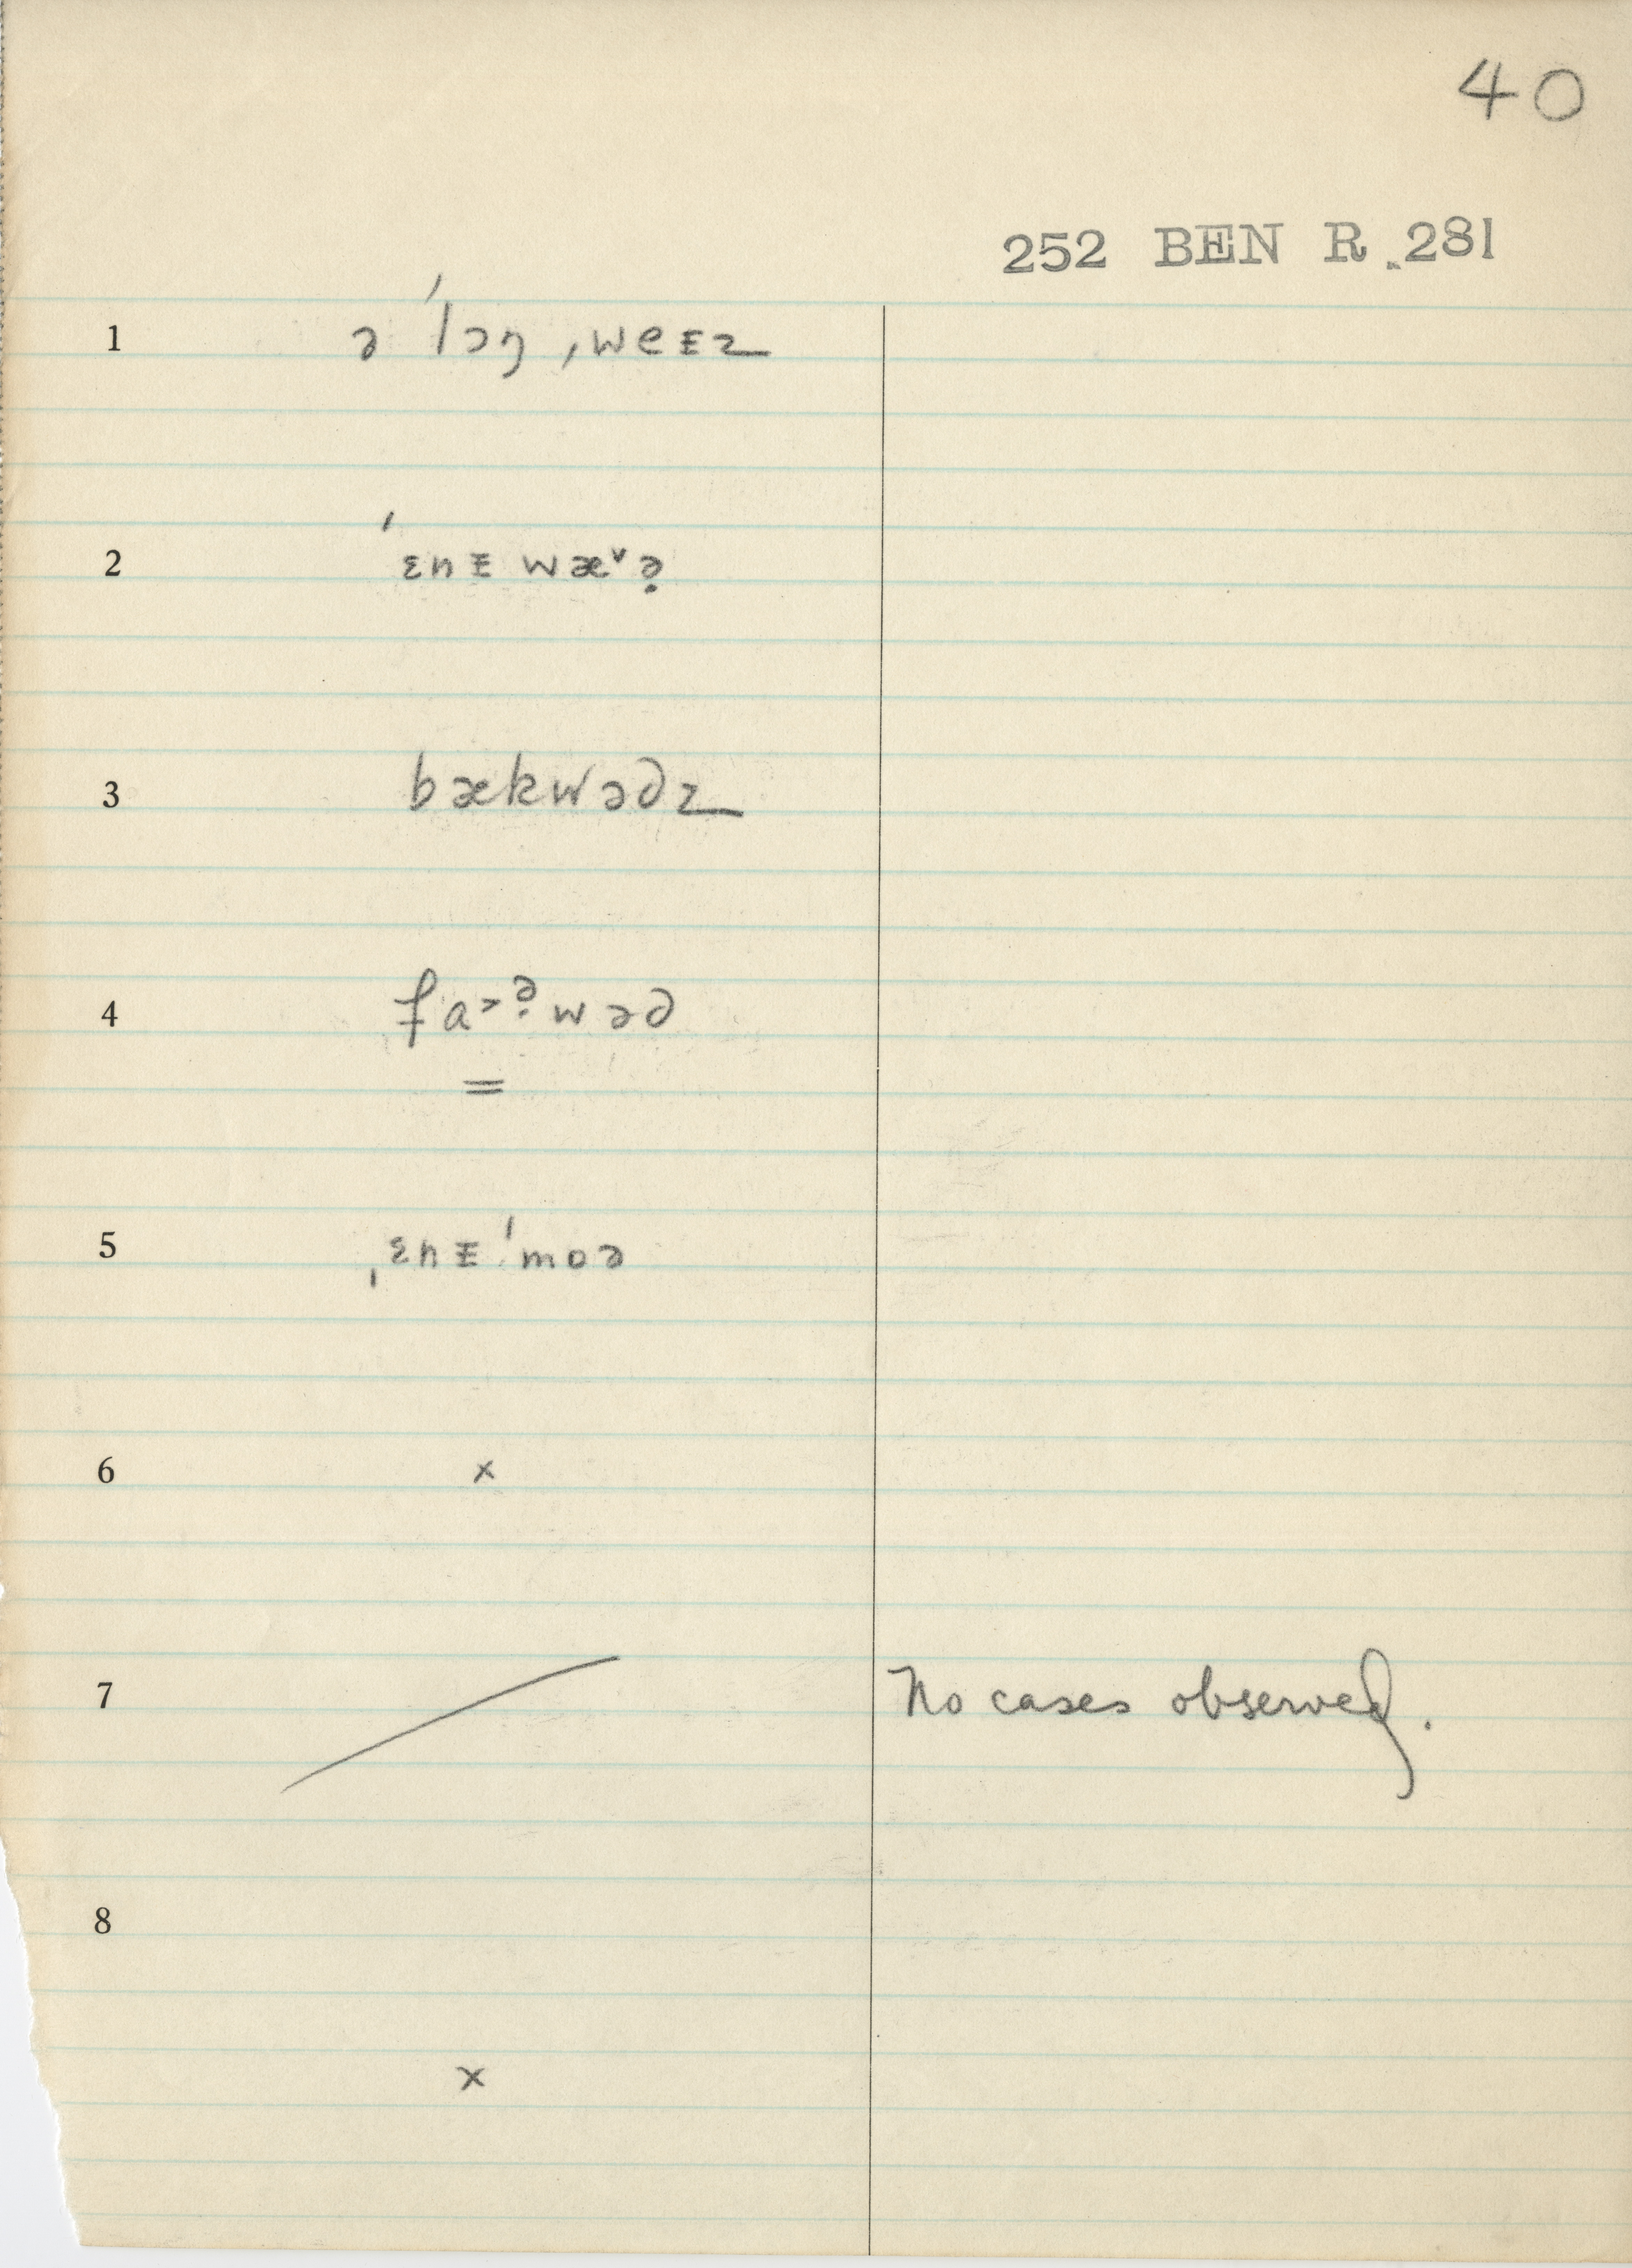 40
252 BEN R. 281
1 ə ˈlɔŋ ˌweᴇz
2 ˈɛnᴇ wæ˅ə̣
3 bækwəds
4 fa˃ə̣wəd
=
5 ˌɛnᴇ ˈmoə
6 x
7 / No cases observed.
8
x